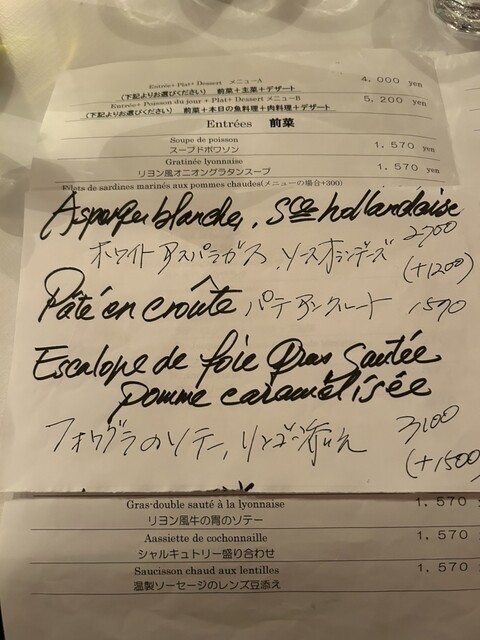 Entrée+ Plat+ Dessert メニューA 4,000 yen
(下記よりお選びください) 前菜+主菜+デザート
Entrée+ Poisson du jour + Plat+ Dessert メニューB 5,200 yen
(下記よりお選びください) 前菜+本日の魚料理+肉料理+デザート
Entrées 前菜
Soupe de poisson
スープドポワソン 1,570 yen
Gratinée lyonnaise
リヨン風オニオングラタンスープ 1,570 yen
Filets de sardines marinés aux pommes chaudes(メニューの場合+300)
Asperges blanches, Sce hollandaise
ホワイトアスパラガス、ソースオランデーズ 2700
(+1200)
Pâté en croûte パテアンクルート 1570
Escalope de foie gras sautée
pomme caramélisée
フォワグラのソテー、リンゴ添え 3100
(+1500)
Gras-double sauté à la lyonnaise 1,570
リヨン風牛の胃のソテー
Aassiette de cochonnaille 1,570
シャルキュトリー盛り合わせ
Saucisson chaud aux lentilles 1,570
温製ソーセージのレンズ豆添え